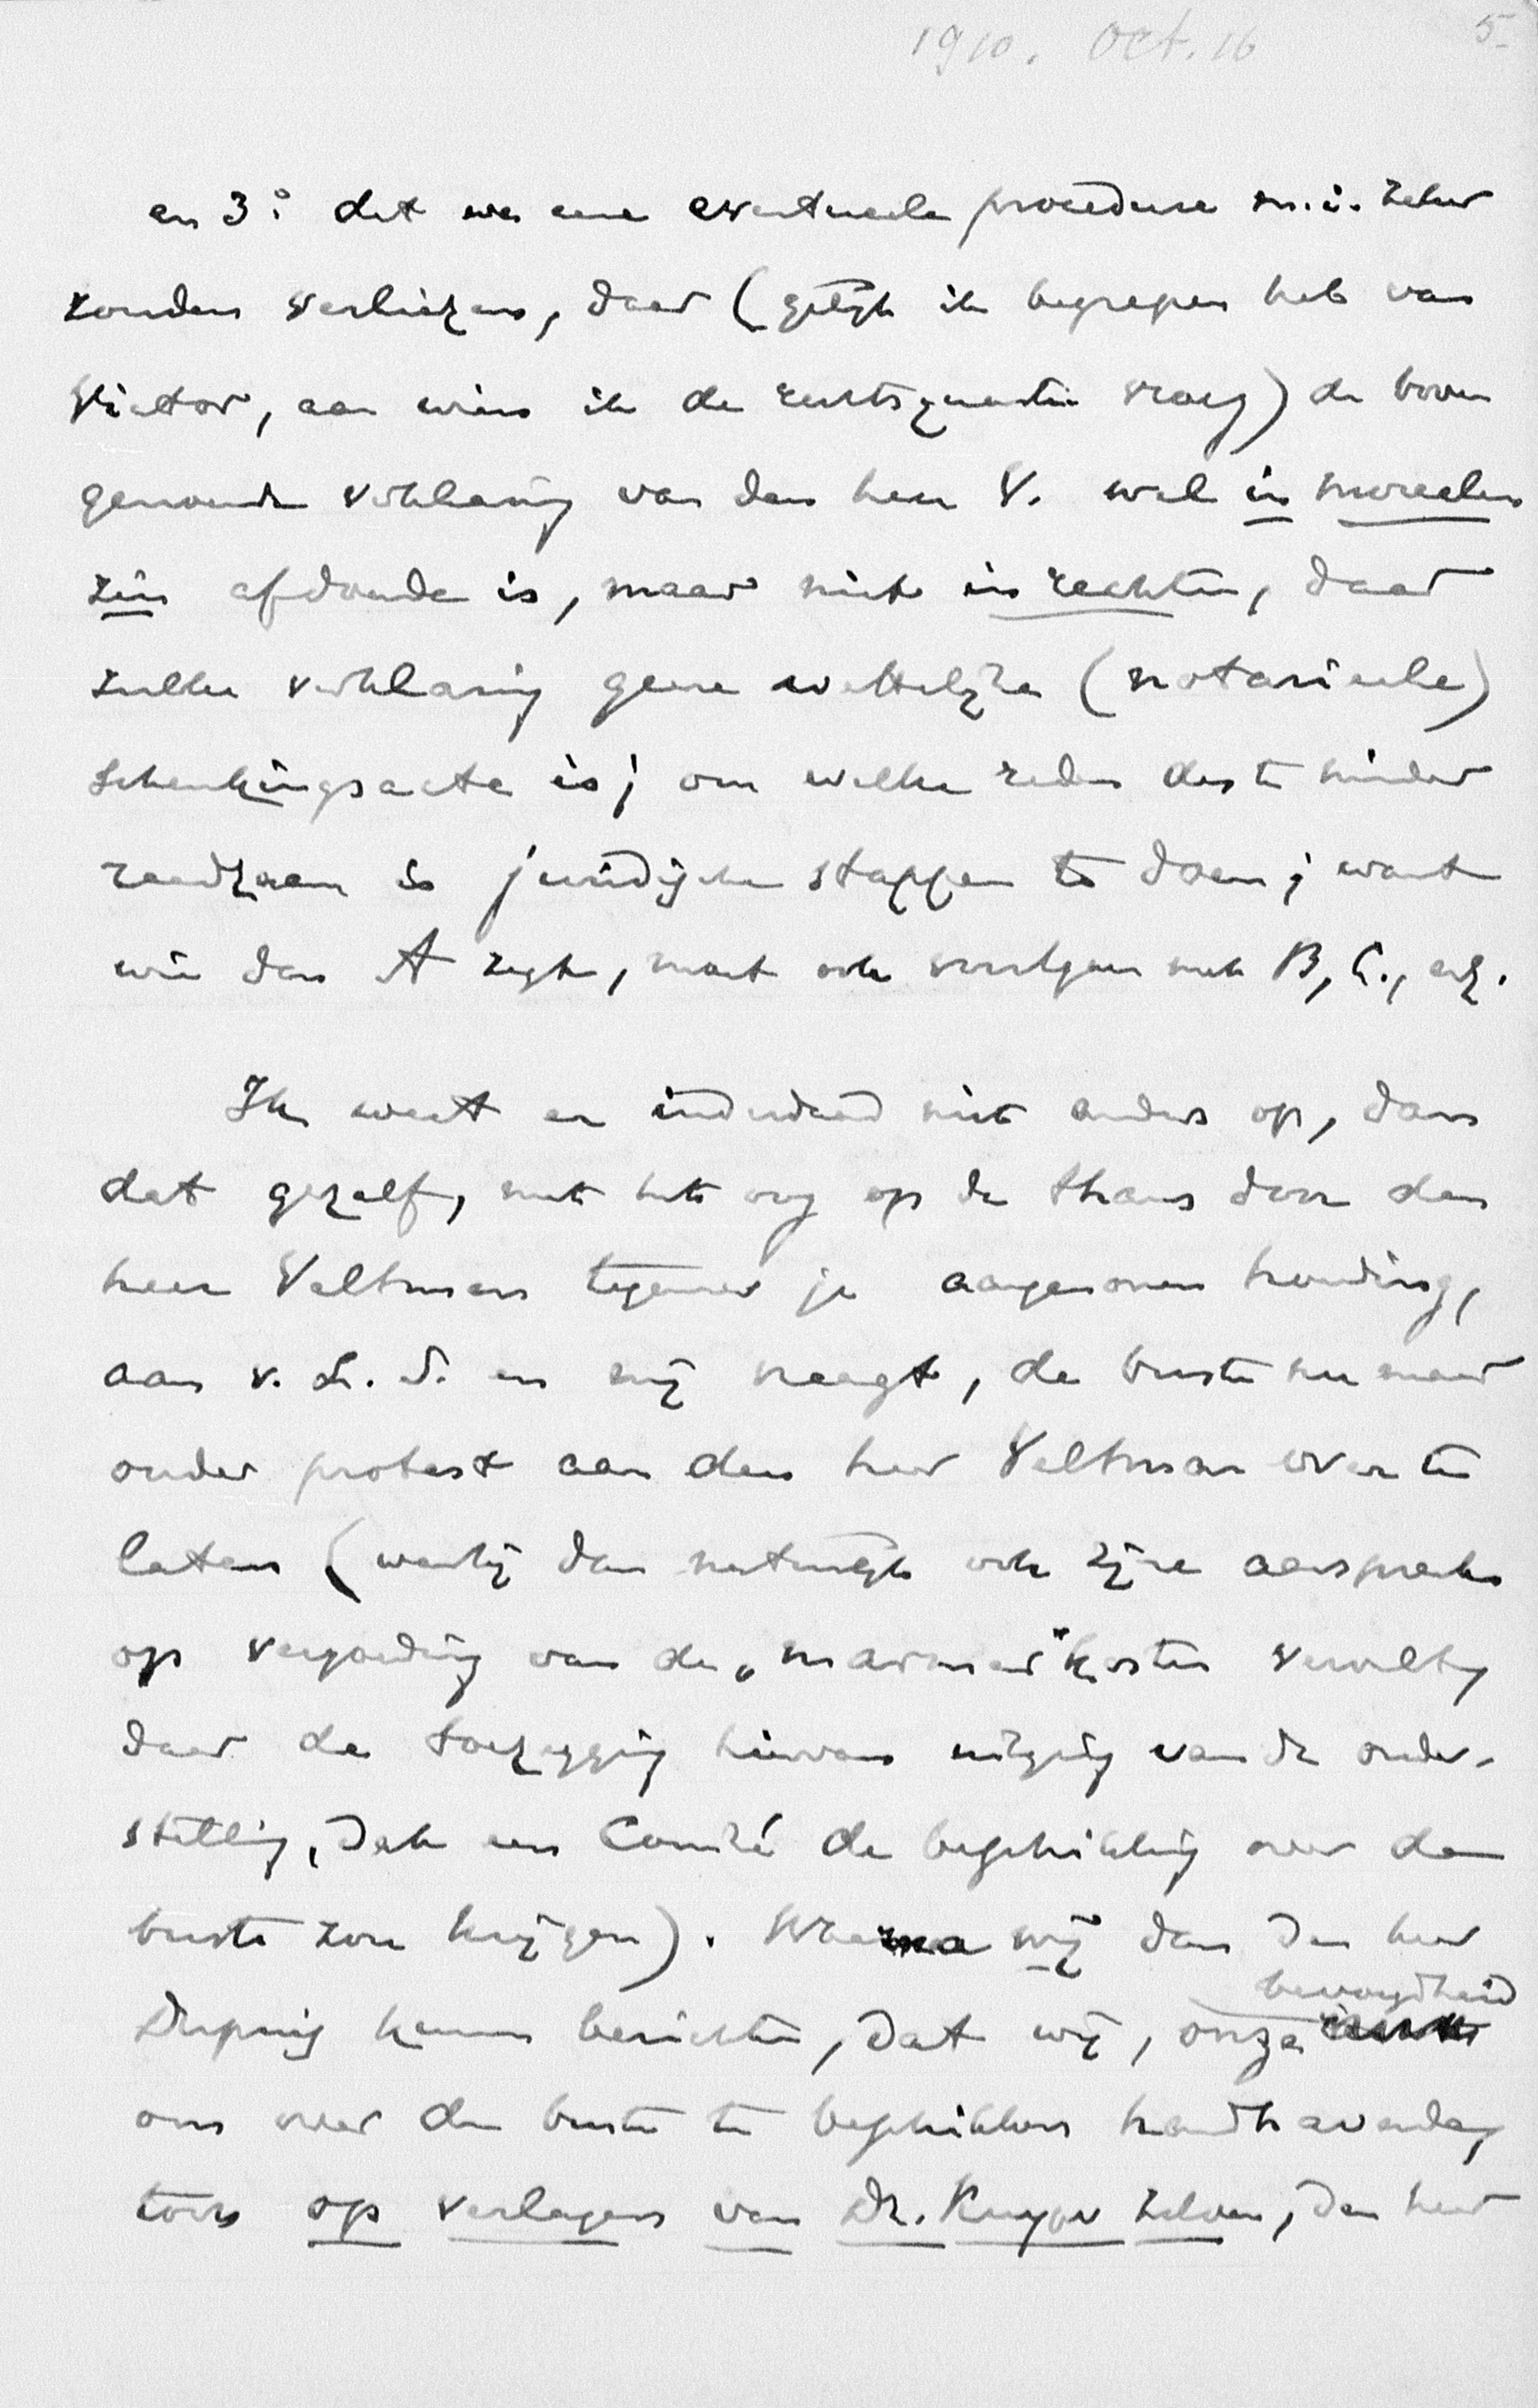 1910. Oct. 16
5.
en 3º: dat we eene eventueele procedure m.i. zeker
zouden verliezen, daar (gelijk ik begrepen heb van
Victor, aan wien ik de rechtsquaestie vroeg) de boven
genoemde verklaring van den heer V. wel in moreelen
zin afdoende is, maar niet in rechten, daar
zulke verklaring geene wettelijke (notarieele)
schenkingsacte is; om welke reden des te minder
raadzaam is juridische stappen te doen; want
wie dan A zegt, moet ook vervolgen met B, C., enz.
Ik weet er inderdaad niet anders op, dan
dat gezelf, met het oog op de thans door den
heer Veltman tegenover je aangenomen houding,
aan v. L. S. en mij vraagt, de buste nu maar
onder protest aan den heer Veltman over te
laten (waarbij dan natuurlijk ook zijne aanspraken
op vergoeding van de „marmer" kosten vervalt,
daar de toezegging hiervan uitging van de onder-
stelling, dat een Comité de beschikking over de
buste zou krijgen). Waarna wij dan den heer
Dupuis kunnen berichten, dat wij, onze bevoegdheid
om over de buste te beschikken handhavende,
toch op verlangen van Dr. Kuyper zelven, den heer